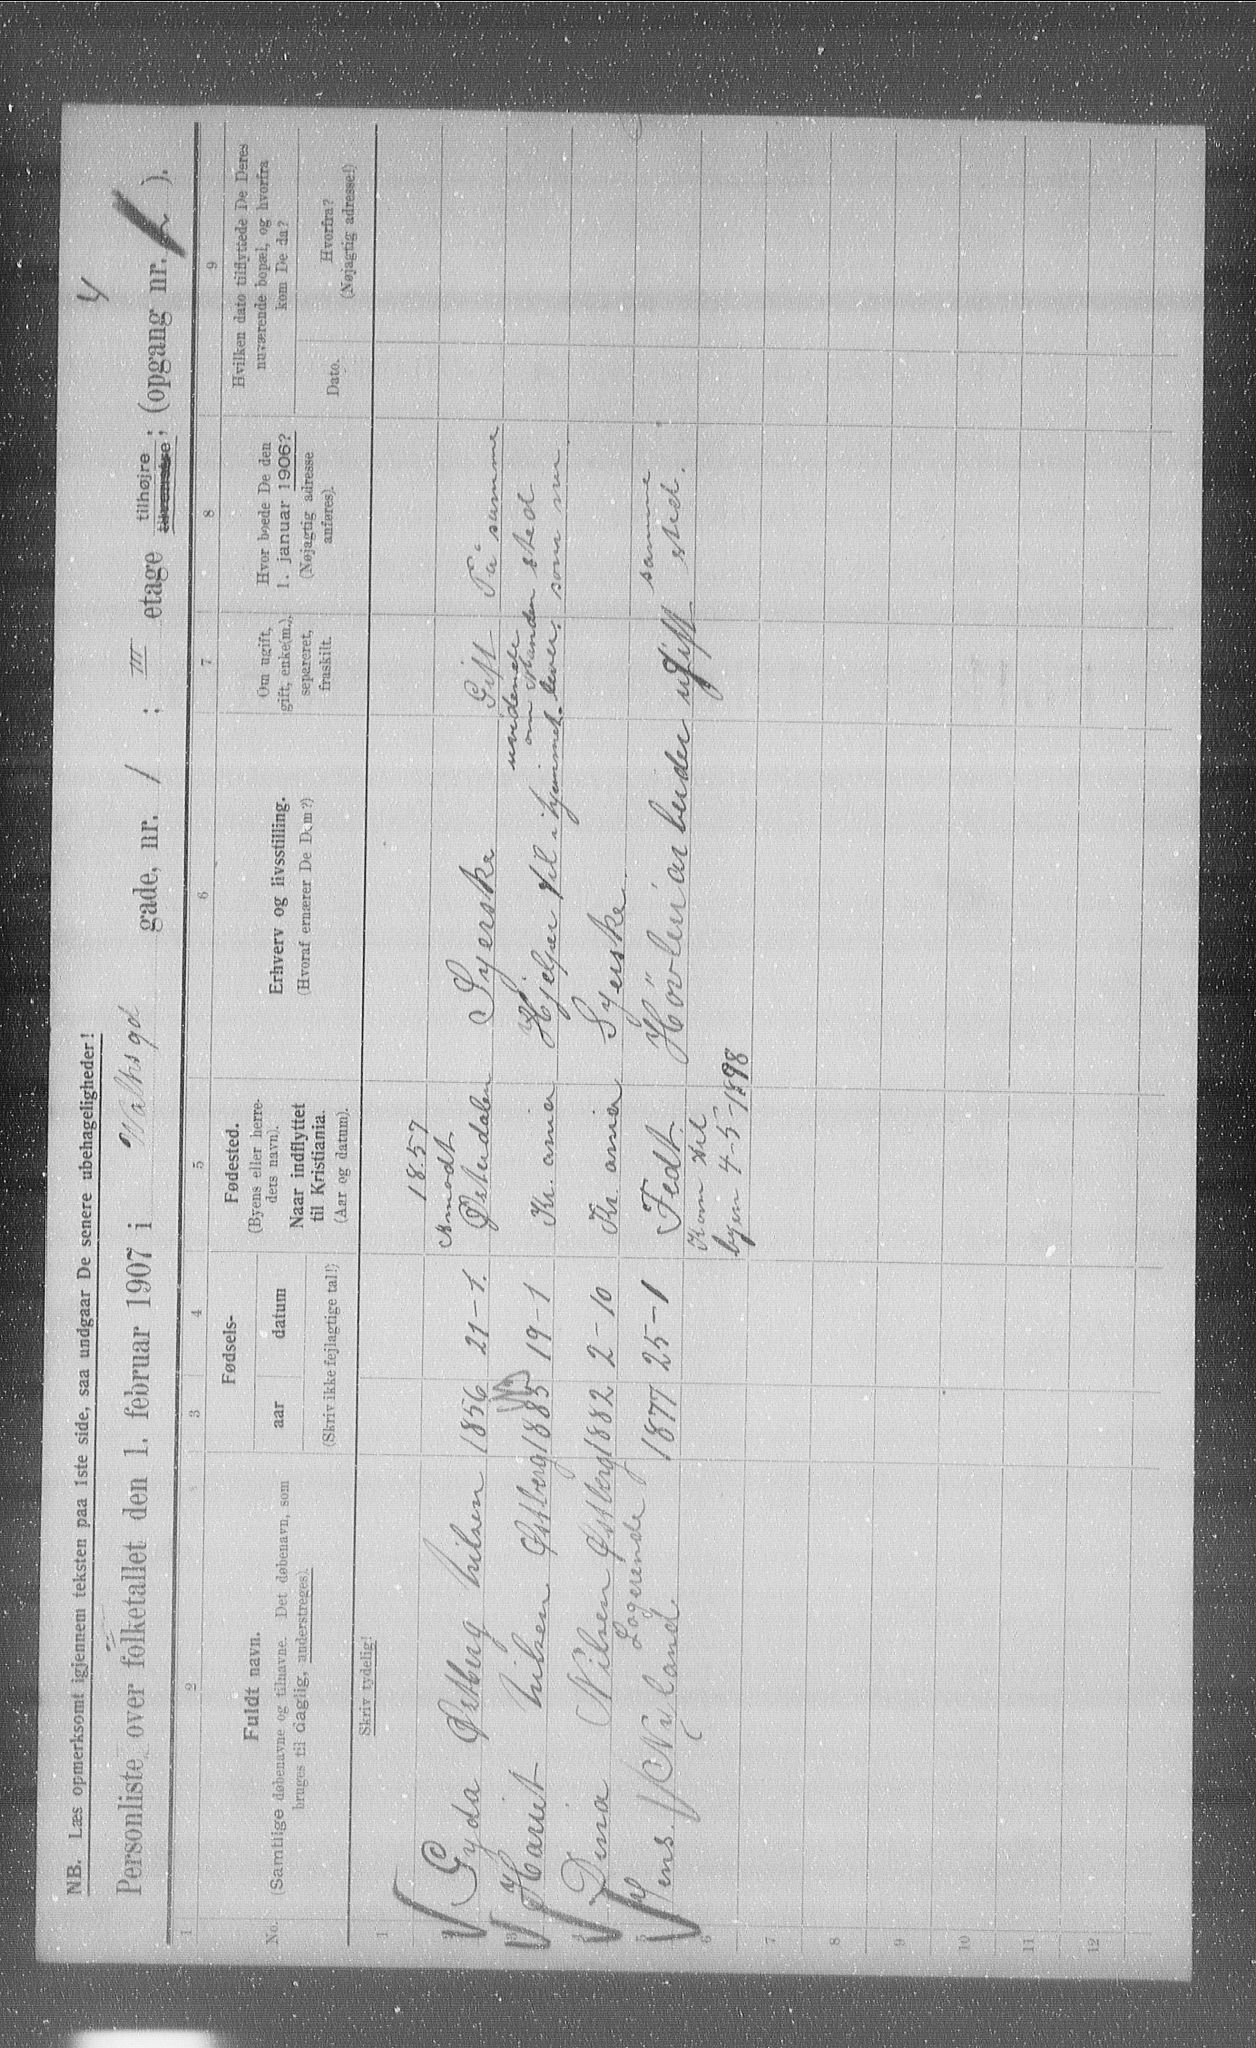 NB. Læs opmerksomt igjennem teksten paa 1ste side, saa undgaar De senere ubehageligheder!
4
Personliste over folketallet den 1. februar 1907 i gade, nr. 1 ; III etage tilhøjre ; (opgang nr. ).
1 2 3 4 5 6 7 8 9
No.
Fuldt navn.
(Samtlige døbenavne og tilnavne. Det døbenavn, som
bruges til daglig, understreges).
Fødsels-
aar datum
(Skriv ikke fejlagtige tal!)
Fødested.
(Byens eller herre-
dets navn).
Naar indflyttet
til Kristiania.
(Aar og datum).
Erhverv og livsstilling.
(Hvoraf ernærer De Dem?)
Om ugift,
gift, enke(m.),
separeret,
fraskilt.
Hvor boede De den
1. januar 1906?
(Nøjagtig adresse
anføres).
Hvilken dato tilflyttede De Deres
nuværende bopæl, og hvorfra
kom De da?
Dato.
Hvorfra?
(Nøjagtig adresse!)
Skriv tydelig!
1
1857
Aamodt
2 Gyda Østberg Nilsen 1856 21-1. Østerdalen Syerske Gift På samme
uvidende
om Manden sted
3 Hariet Nilsen Østberg 1885 19-1 Kr.ania Hjelper til i hjemmet. lever. som nu
4 Dina Nilsen Østberg 1882 2-10 Kr.ania Syerske.
Logerende samme
5 Jens. Nyland. 1877 25-1 Fedt Høvleriarbeider ugift sted.
6 Kom til
byen 4-5-1898
7
8
9
10
11
12